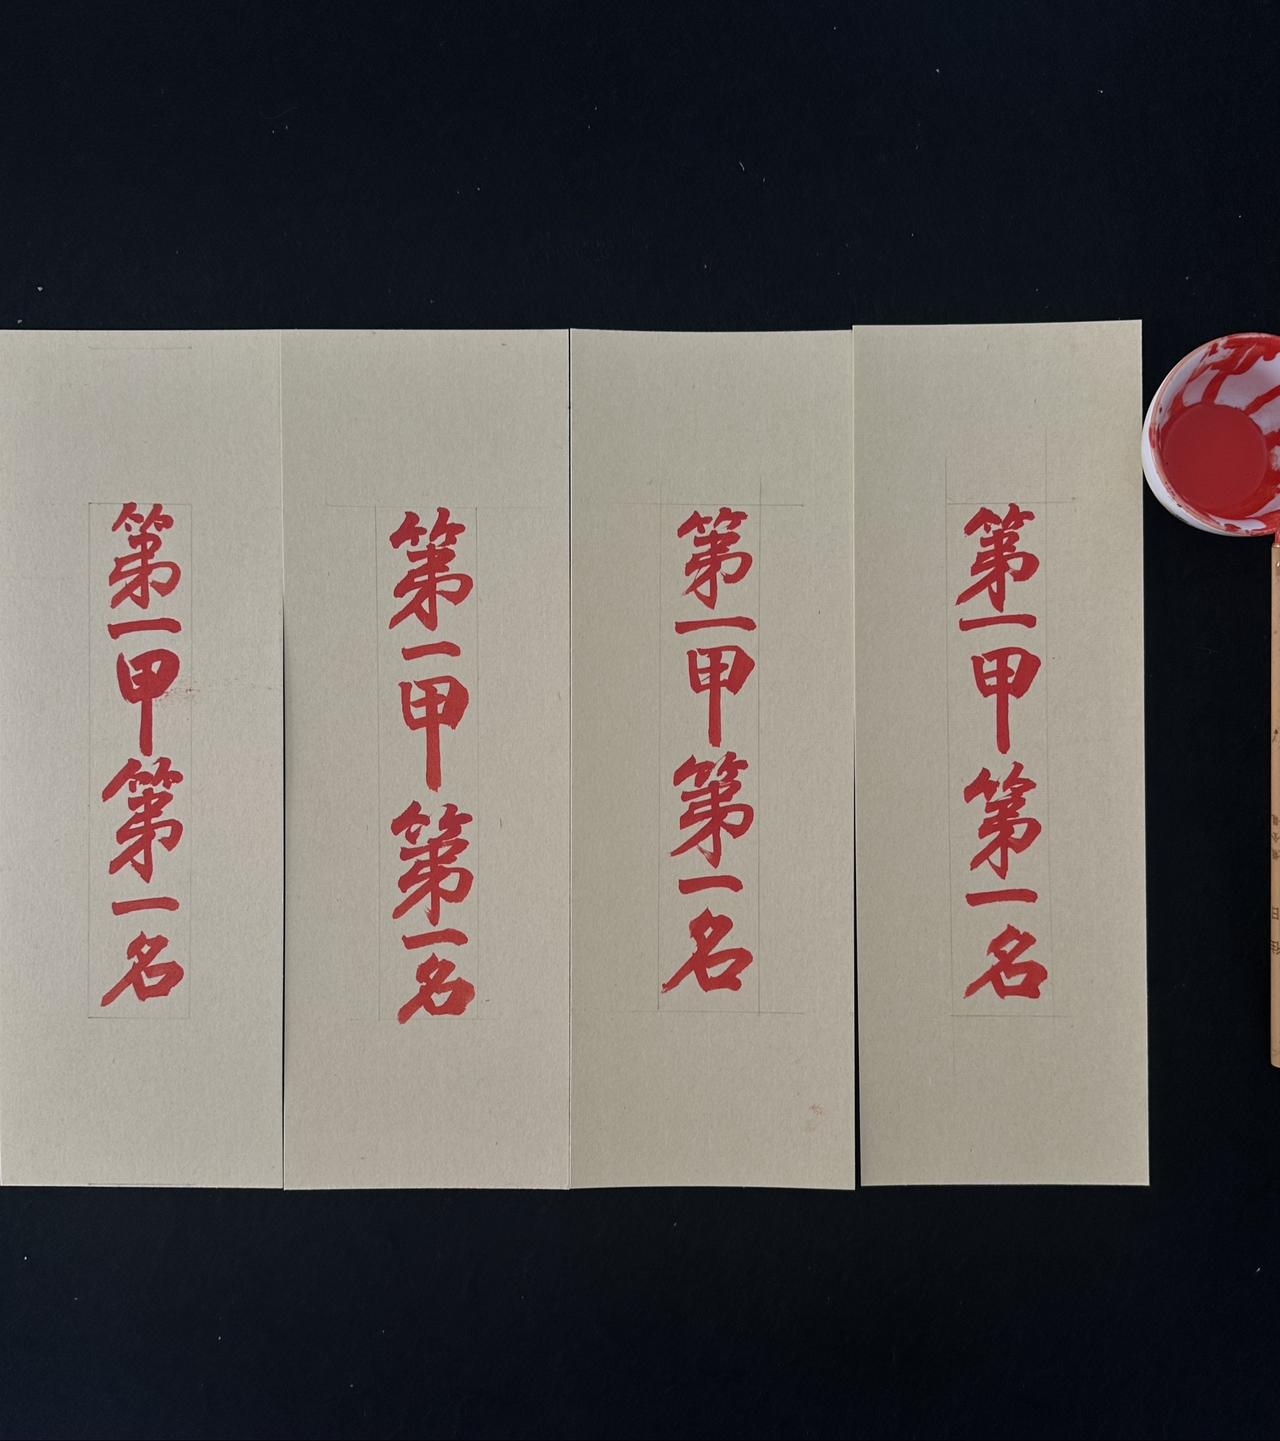 第一甲第一名
第一甲第一名
第一甲第一名
第一甲第一名